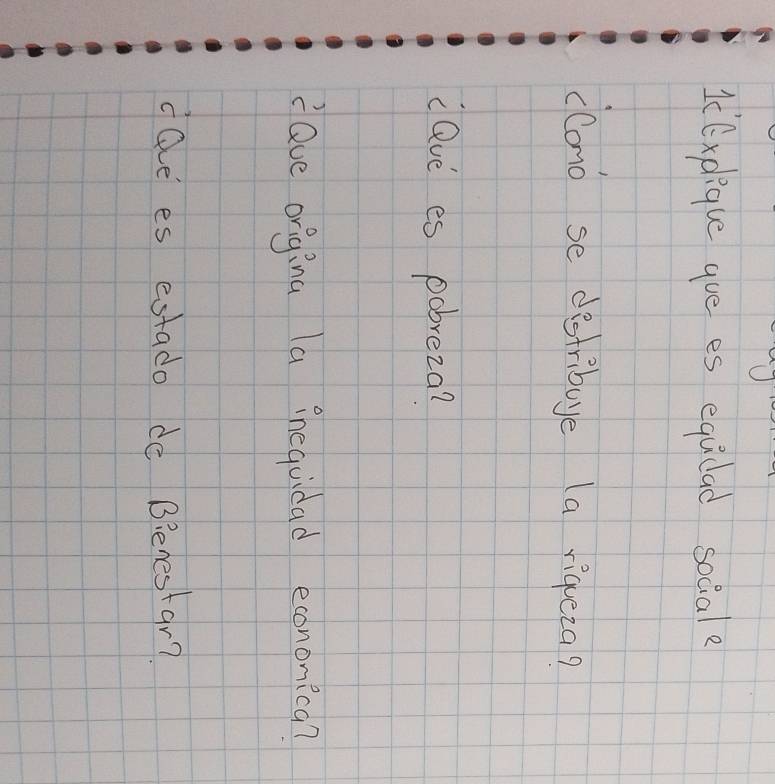 1¿Explique que es equidad social?
¿Como se distribuye la riqueza?
¿Qué es pobreza?
¿Que origina la inequidad economica?
¿Qué es estado de Bienestar?